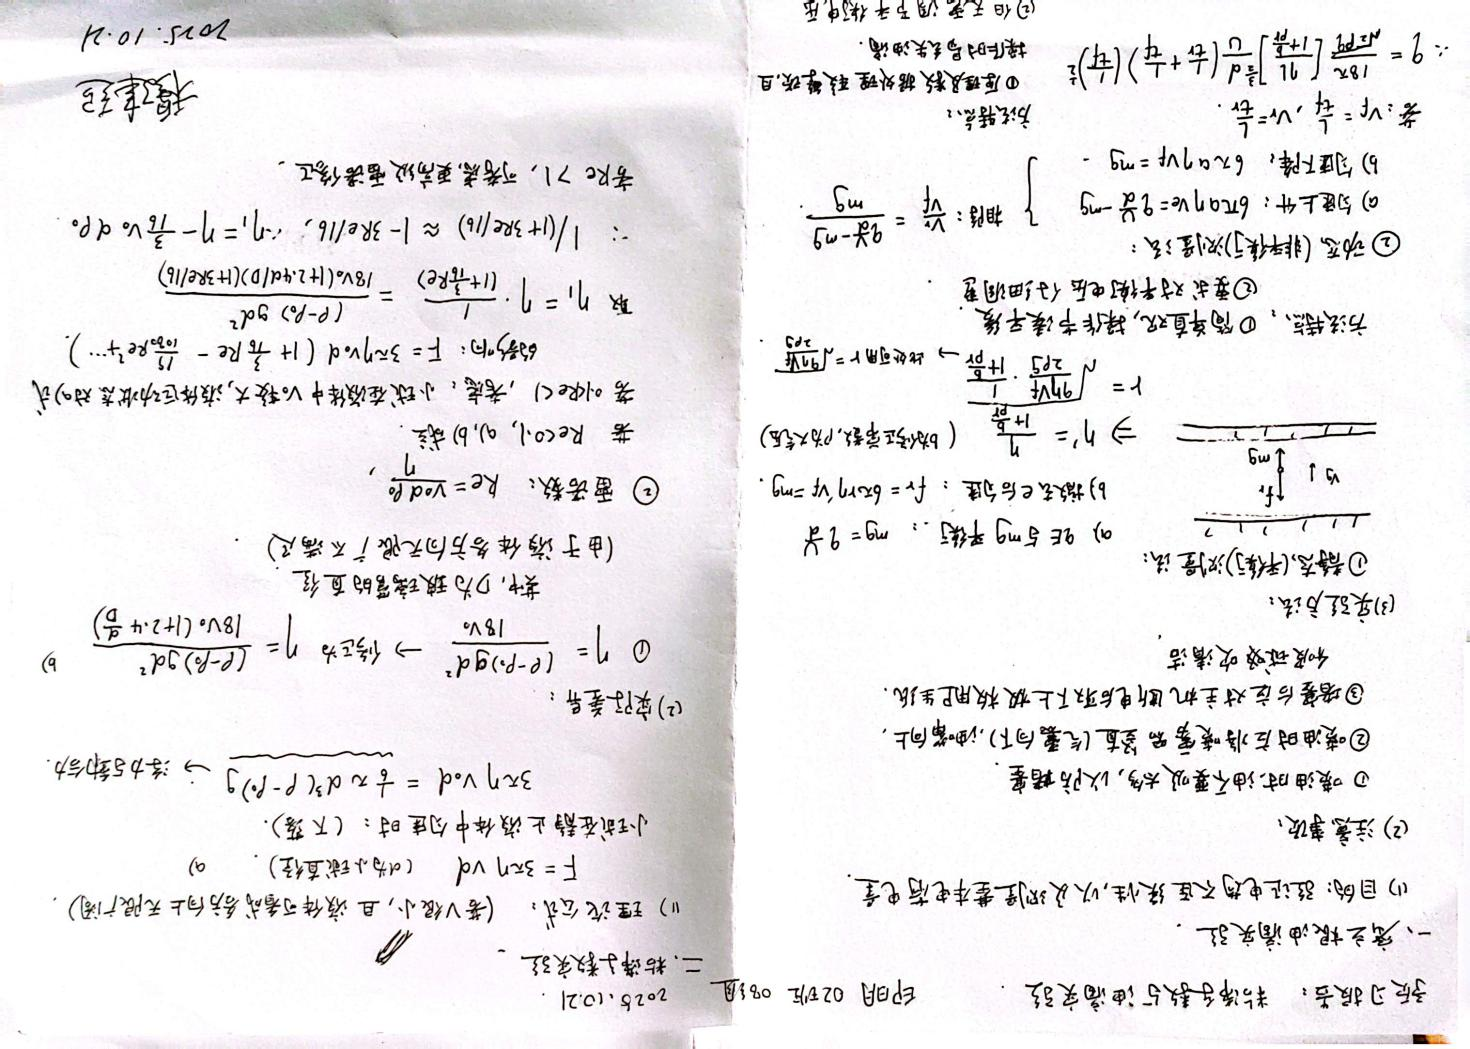 预习报告: 粘滞系数与油滴实验 02班 2025.10.21.
一、密立根油滴实验.
(1) 目的: 验证电荷不连续性,以及测量基本电荷电量.
(2) 注意事项:
① 喷油时油不要吸太多,以防堵塞
② 喷油时应将喷雾器竖直(气囊向下),油嘴向上.
③ 堵塞后应对主机断电后取下上极板用卫生纸
(3) 实验方法:
① 静态(平衡)测量法:
a) qE与mg平衡: mg = q U/d
b) 撤去E后匀速: fr = 6πrη'vf = mg.
⇒ η' = η/(1+b/pr) (b为修正常数,p为大气压)
fr
mg
vg
r = √(9ηvf/2ρg · 1/(1+b/pr)) → 此处可用 r = √(9ηvf/2ρg)
方法特点: ① 简单直观,操作步骤平缓
② 要求对平衡电压仔细调整
② 动态(非平衡)测量法:
a) 匀速上升: 6πaηve = q U/d - mg
b) 匀速下降: 6πaηvf = mg.
} 相除: vr/vf = (q U/d - mg)/mg.
若: vf = L/tf, vr = L/tr.
∴ q = 18π/√(2ρg) [ηL/(1+b/pr)]^(3/2) d/U (1/tr + 1/tf)(1/tf)^(1/2)
方法特点:
① 原理及数据处理较繁琐,且
操作时易丢失油滴.
(2) 但无需调节平衡电压
二、粘滞系数实验.
(1) 理论公式: (若v很小,且液体可看成各方向上无限广阔).
F = 3πηvd (d为小球直径). a)
小球在静止液体中匀速时: (下落).
3πηv₀d = 1/6 πd³(ρ-ρ₀)g → 浮力与重力合力.
(2) 实际差异:
① η = (ρ-ρ₀)gd²/18v₀ → 修正为 η = (ρ-ρ₀)gd²/18v₀(1+2.4 d/D) b)
其中,D为玻璃管的直径
(由于液体各方向无限广不满足).
② 雷诺数: Re = v₀dρ₀/η,
若 Re<0.1, a),b)成立.
若 0.1<Re<1, 考虑: 小球在液体中v₀较大,液体运动状态对a)式
的影响: F = 3πηv₀d (1 + 3/16 Re - 19/1080 Re² + …).
取 η₁ = η · 1/(1+3/16 Re) = (ρ-ρ₀)gd²/18v₀(1+2.4d/D)(1+3Re/16)
∵ 1/(1+3Re/16) ≈ 1-3Re/16, ∴ η₁ = η - 3/16 v₀dρ₀.
若Re>1, 可考虑更高级雷诺修正.
2025.10.21